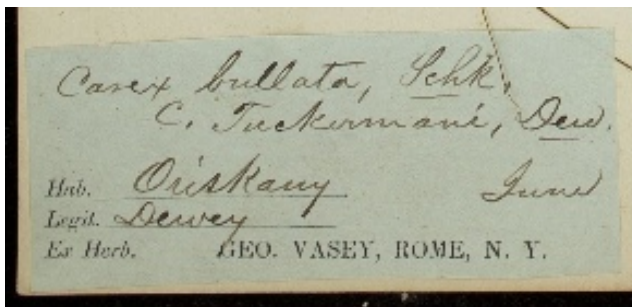 Carex bullata, Schk.
C. Tuckermani, Dew.
Hab. Oriskany June
Legit. Dewey
Ex Herb. GEO. VASEY, ROME, N. Y.